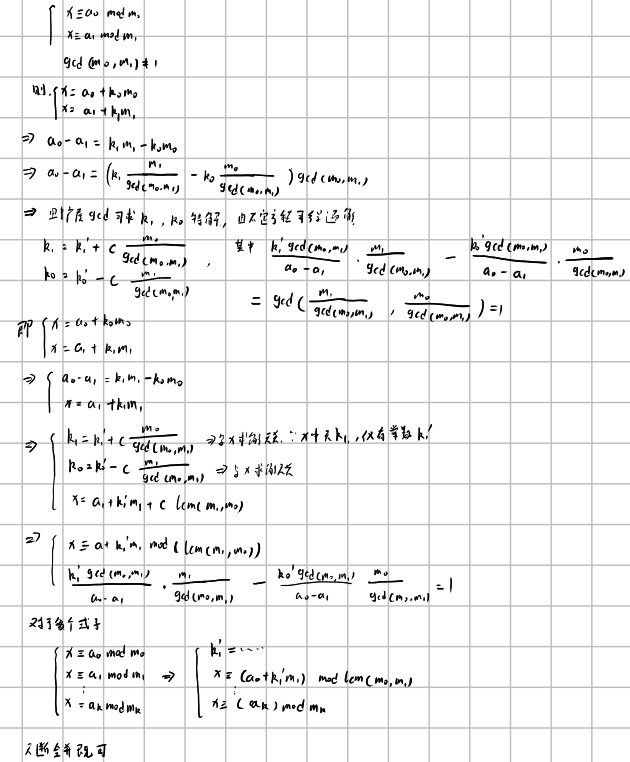 { x ≡ a₀ mod m₀
x ≡ a₁ mod m₁
gcd(m₀, m₁) ≠ 1
则. { x = a₀ + k₀m₀
x = a₁ + k₁m₁
⇒ a₀ - a₁ = k₁m₁ - k₀m₀
⇒ a₀ - a₁ = (k₁ m₁/gcd(m₀,m₁) - k₀ m₀/gcd(m₀,m₁)) gcd(m₀,m₁)
⇒ 由扩展gcd可求k₁, k₀特解, 由不定方程可得通解
k₁ = k₁' + c m₀/gcd(m₀,m₁) , 其中 k₁'gcd(m₀,m₁)/(a₀-a₁) · m₁/gcd(m₀,m₁) - k₀'gcd(m₀,m₁)/(a₀-a₁) · m₀/gcd(m₀,m₁)
k₀ = k₀' - c m₁/gcd(m₀,m₁)
= gcd(m₁/gcd(m₀,m₁), m₀/gcd(m₀,m₁)) = 1
即 { x = a₀ + k₀m₀
x = a₁ + k₁m₁
⇒ { a₀ - a₁ = k₁m₁ - k₀m₀
x = a₁ + k₁m₁
⇒ { k₁ = k₁' + c m₀/gcd(m₀,m₁) ⇒ 与x求解无关. ∵ x中无k₁, 仅有常数k₁'
k₀ = k₀' - c m₁/gcd(m₀,m₁) ⇒ 与x求解无关
x = a₁ + k₁'m₁ + c lcm(m₁,m₀)
⇒ { x ≡ a + k₁'m₁ mod (lcm(m₁,m₀))
k₁'gcd(m₀,m₁)/(a₀-a₁) · m₁/gcd(m₀,m₁) - k₀'gcd(m₀,m₁)/(a₀-a₁) m₀/gcd(m₀,m₁) = 1
对于多个式子
{ x ≡ a₀ mod m₀ { k₁' = ·····
x ≡ a₁ mod m₁ ⇒ x ≡ (a₀+k₁'m₁) mod lcm(m₀,m₁)
⋮ ⋮
x = aₖ mod mₖ x ≡ (aₖ) mod mₖ
不断合并既可